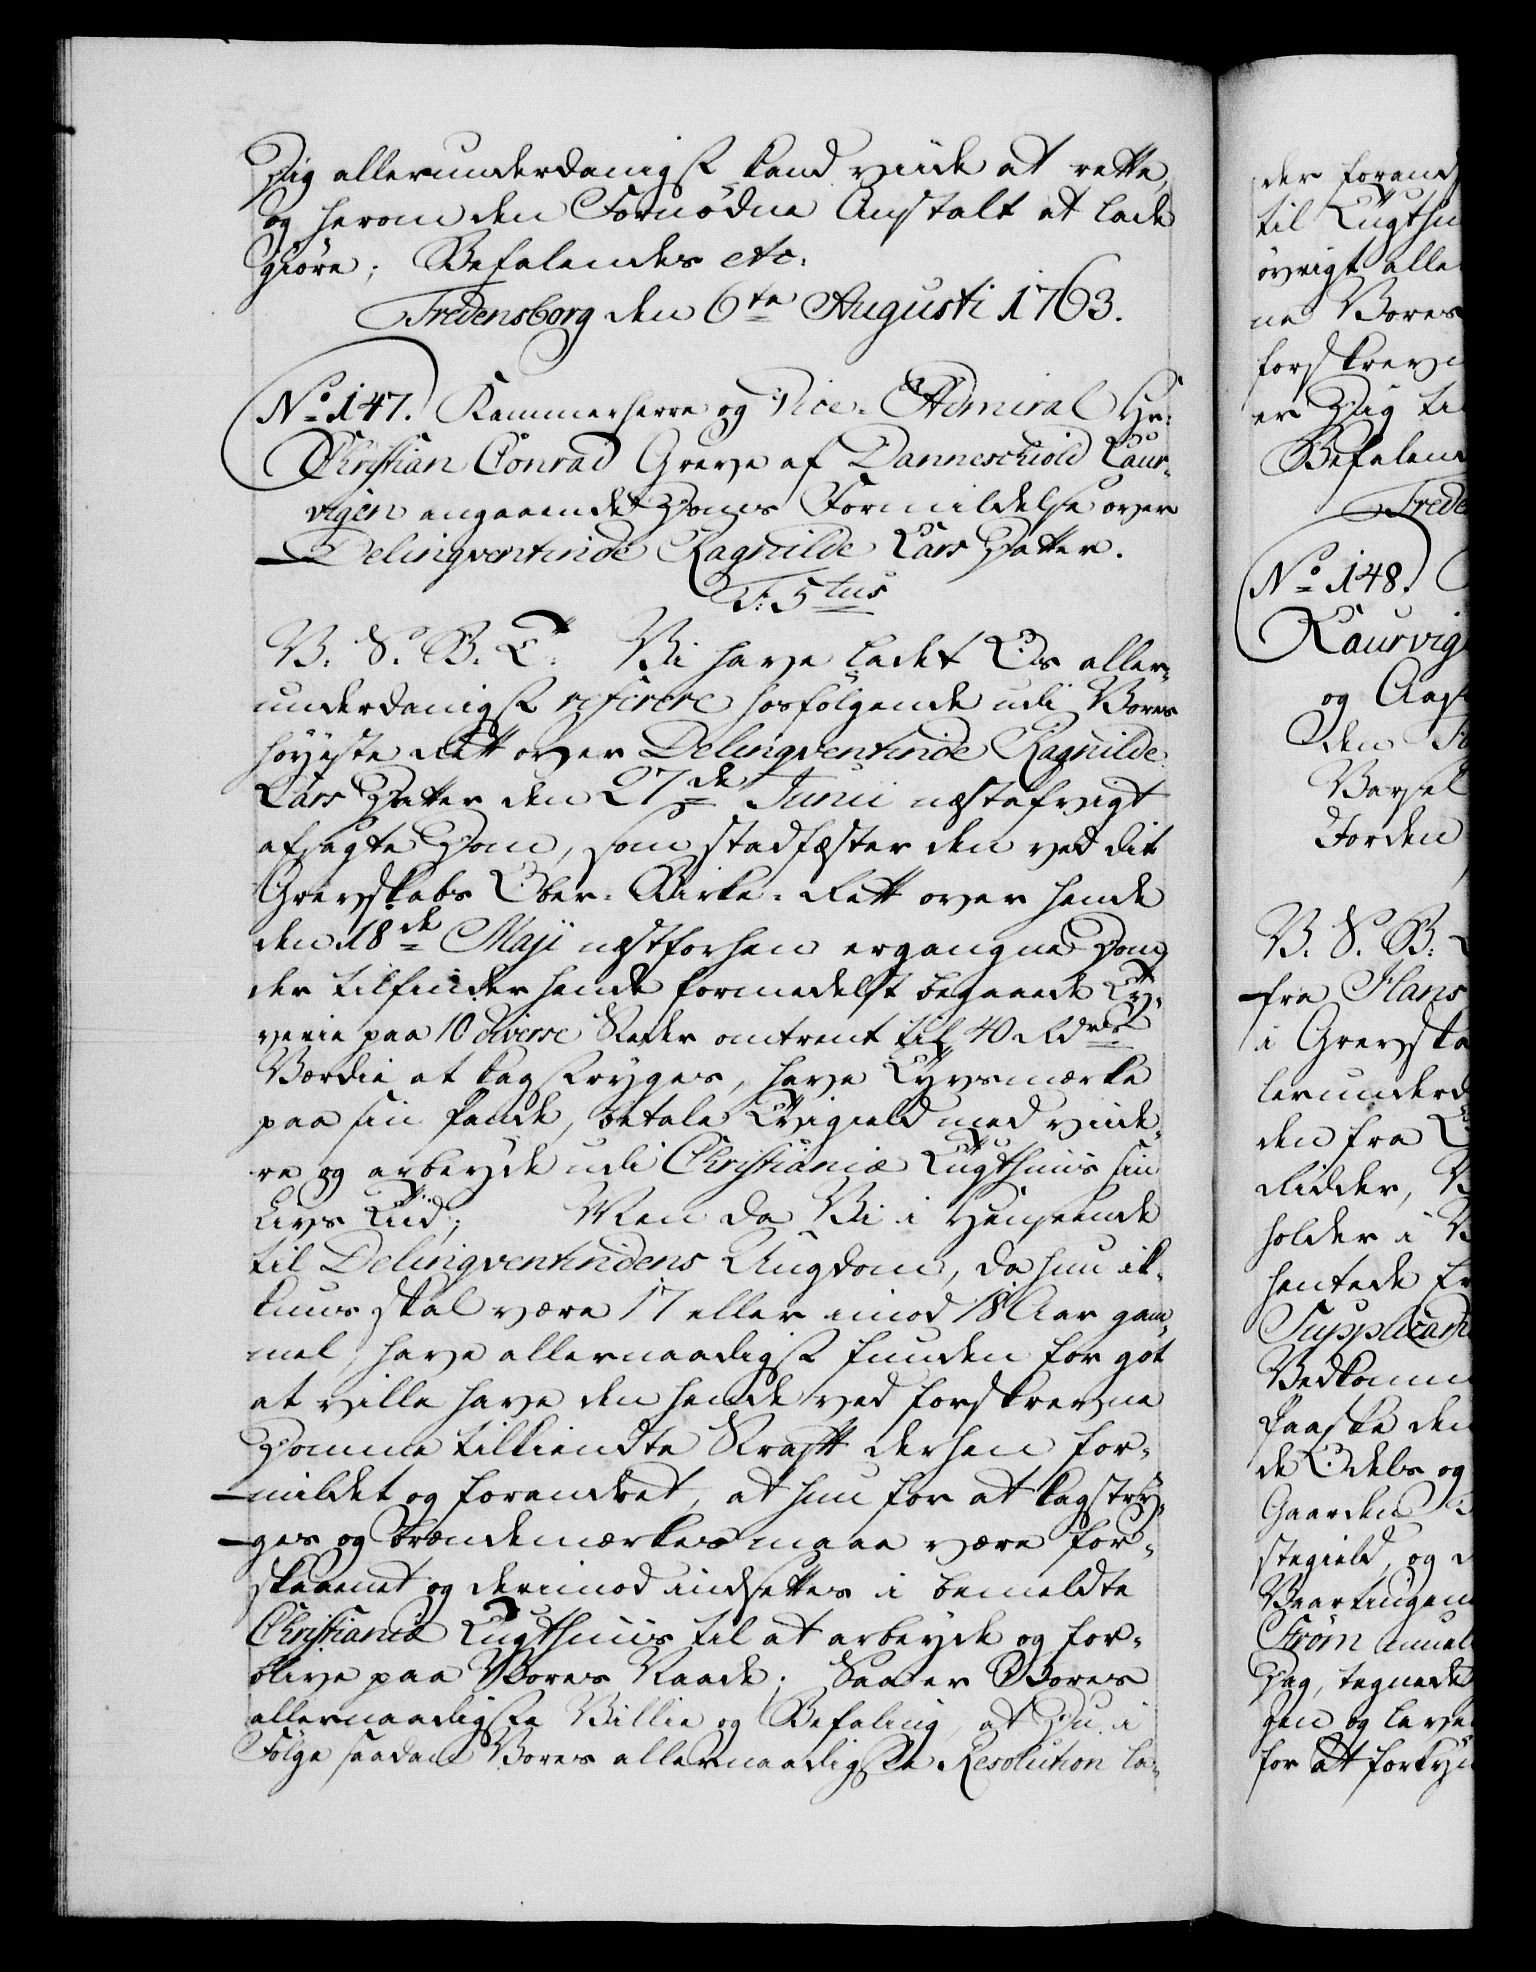 Dig allerunderdanigst kand viide at rette,
og herom den Fornødne Anstalt at lade
giøre; Befalendes etc:
Fredensborg den 6te Augusti 1763.
No 147. Kammerherre og Vice-Admiral Hr:
Christian Conrad Greve af Danneschiold Laur-
vigen angaaende Doms Formildelse over
Delinqventinde Ragnilde Lars Datter.
F: 5tus
V. S. B. T. Vi have ladet Os aller-
underdanigst referere hosfølgende udi Vores
høyeste Rett over Delinqventinde Ragnilde
Lars Datter den 27de Junii næstafvigt
afsagte Dom, som stadfæster den ved dit
Grevskabs Ober-Birke-Rett over hende
den 18de Maji næstforhen ergangne Dom,
der tilfinder hende formedelst begaaede Ty-
verie paa 10 diverse Stæder omtrent til 40 Rdrs
Værdie at kagstryges, have Tyvsmærke
paa sin Pande, betale Tvigield med viide-
re og arbeyde udi Christianiæ Tugthuus sin
Livs Tiid; Men da Vi i Henseende
til Delinqventindens Ungdom, da hun ik-
kuns skal være 17 eller imod 18 Aar gam-
mel, have allernaadigst funden for got
at ville have den hende ved forskrevne
Domme tilkiendte Straff derhen for-
mildet og forandret, at hun for at kagstry-
ges og brændemærkes maae være for-
skaanet og derimod indsettes i bemeldte
Christiania Tugthuus til at arbeyde og for-
blive paa Vores Naade; Saa er Vores
allernaadigste Villie og Befaling, at Du i
Følge saadan Vores allernaadigste Resolution la-
der forand
til Tugthu
øvrigt alle
ne Vores
forskrevn
er Dig ti
Befalend
Frede
No 148.
Laurvig
og Aas
den
Varsel
Jorden
V. S. B.
fra Hans
i Grevska
lerunderd
den fra
Ridder, V
holder i
hentede
Supplicant
Vedkomm
Paaske den
de Odels og
Gaarden
stegield, og
Vaartingen
Strøm
Dag, tegnede
gen og
for at forkyn